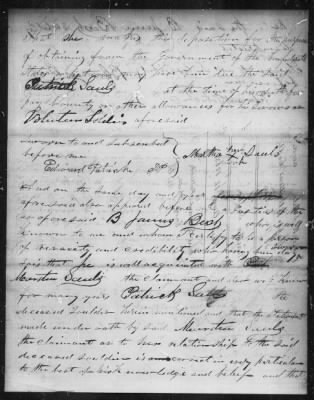 that she makes this deposition for the purpose
of obtaining from the Government of the Confederate
States any money due the said
Patrick Sauls at the time of his death for
pay bounty or other allowances for his services as
Volunteer Soldier aforesaid
Sworn to and subscribed
before me
Edward Patrick J.P.
Martha her Sauls
mark
And on the same day and year
aforesaid also appeared before
as aforesaid B James Best who is well
known to me and whom I certify to be a person
of veracity and credibility who having been duly sworn
says that he is well acquainted with
Sauls the claimant and also well known
for many years Patrick Sauls the
deceased Soldier herein mentioned and that the statement
made under oath by said Sauls
the claimant as to her relationship to the said
deceased soldier is correct in every particular
to the best of his knowledge and belief and that